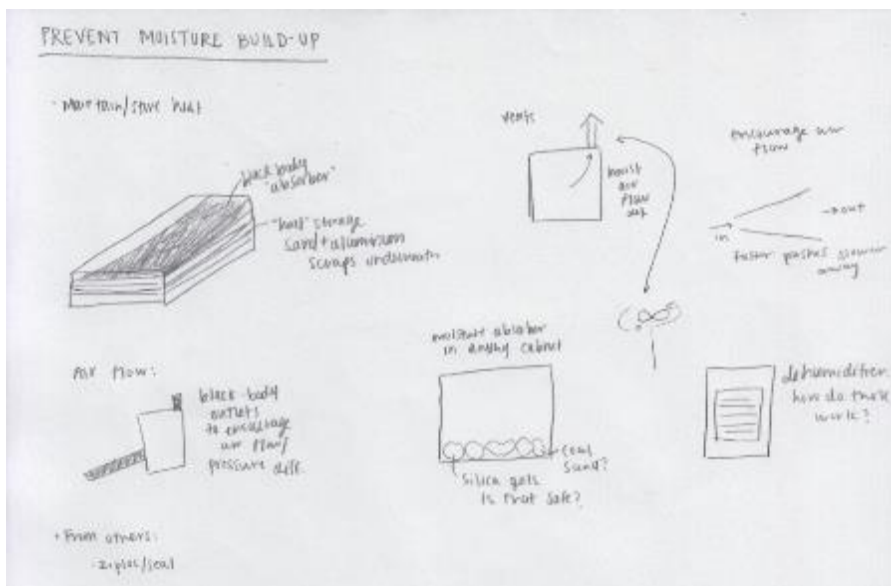 PREVENT MOISTURE BUILD-UP
· Maintain/store heat
black body
"absorber"
"heat" storage
sand + aluminum
scraps underneath
vents
moist
air
flow
out
encourage air
flow
in
→ out
faster pushes slower
away
Air Flow:
black-body
outlets
to encourage
air flow/
pressure diff.
moisture absorber
in drying cabinet
coal
sand?
silica gels
Is that safe?
dehumidifier
how do these
work?
· From others:
- ziploc/seal